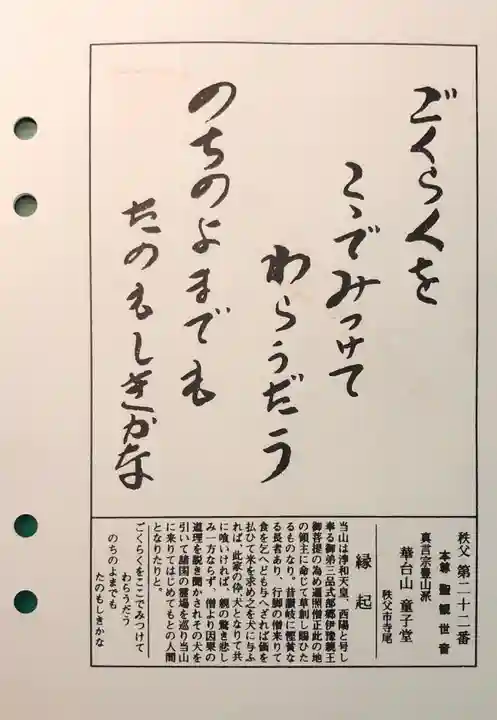 ごくらくを
こゝでみつけて
わらうだう
のちのよまでも
たのもしきかな
秩父 第二十二番
本尊 聖観世音
真言宗豊山派
華台山 童子堂
秩父市寺尾
縁起
当山は淳和天皇、西陽と号し
奉る御弟三品式部郷伊豫親王
御菩提の為め遍照僧正此の地
の領主に命じて草創し賜ひた
るものなり。昔讃岐に慳貪な
る長者あり、行脚の僧来りて
食を乞へども与へざれば価を
払ひて米を求め之を犬に与ふ
れば、此家の倅、犬となりて共
に喰いければ、親の驚き悲し
み一方ならず、僧より因果の
道理を説き聞かされその犬を
引いて諸国の霊場を巡り当山
に来りてはじめてもとの人間
となりたりと。
ごくらくをここでみつけて
わらうだう
のちのよまでも
たのもしきかな